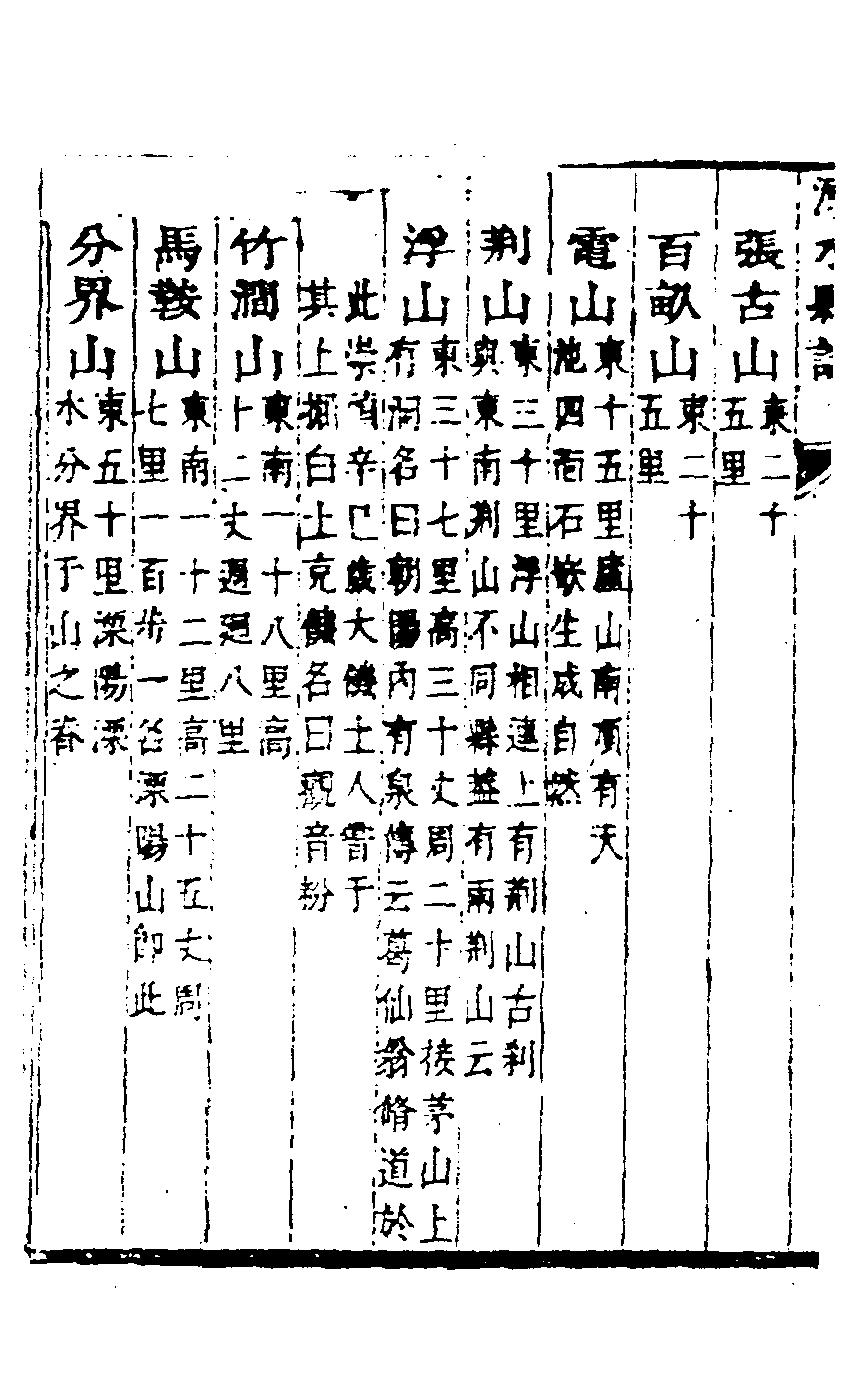 水縣
張古山東二十
五里
百畝山東二十
五里
電山東十五里廬山南頂有天
池四面石嵌生成自然
荆山東三十里浮山相連上有荆山古刹
與東南荆山不同縣葢有兩荆山云
浮山東三十七里高三十丈周二十里接茅山上
有洞名曰朝陽内有泉傳云葛仙翁脩道於
此崇禎辛巳歲大饑土人嘗于
其上掘白土充饑名曰觀音粉
竹澗山東南一十八里高
十二丈週迴八里
馬鞍山東南一十二里高二十五丈周
七里一百步一名溧陽山即此
分界山東五十里溧陽溧
水分界于山之脊